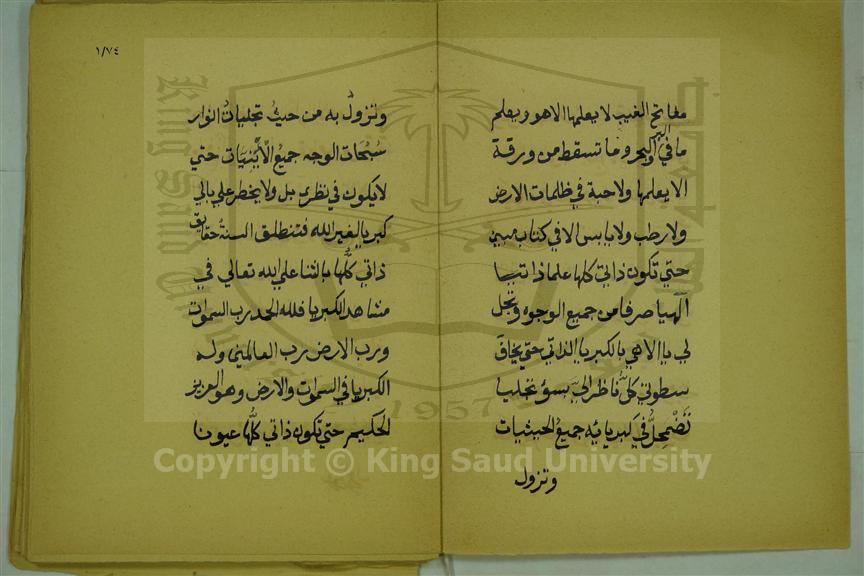 مفاتح الغيب لا يعلمها الا هو ويعلم
ما في البر والبحر وما تسقط من ورقة
الا يعلمها ولا حبة في ظلمات الارض
ولا رطب ولا يابس الا في كتاب مبين
حتي تكون ذاتي كلها علما ذاتيا
آلهيا صرفا من جميع الوجوه وتجل
لي يا الاهي بالكبريا الذاتي حتي يخاف
سطوتي كلُّ ناظر اليَّ بسوءٍ تجليا
تَضْمحِلُّ في كبريائه جميعُ الحيثيات
وتزول
١/٧٤
وتزولُ به من حيثُ تجلياتُ انوار
سُبُحَات الوجه جميعُ الأَيْنِيَات حتي
لا يكون في نظري بل ولا يخطر علي بالي
كبريا لغير الله فتنطلق السنةُ حقايق
ذاتي كلُّها بالثنا علي الله تعالي في
مشاهد الكبريا فلله الحمد رب السموات
ورب الارض رب العالمين وله
الكبريا في السموات والارض وهو العزيز
الحكيم حتي تكون ذاتي كلُّها عيونا
1957
Copyright © King Saud University